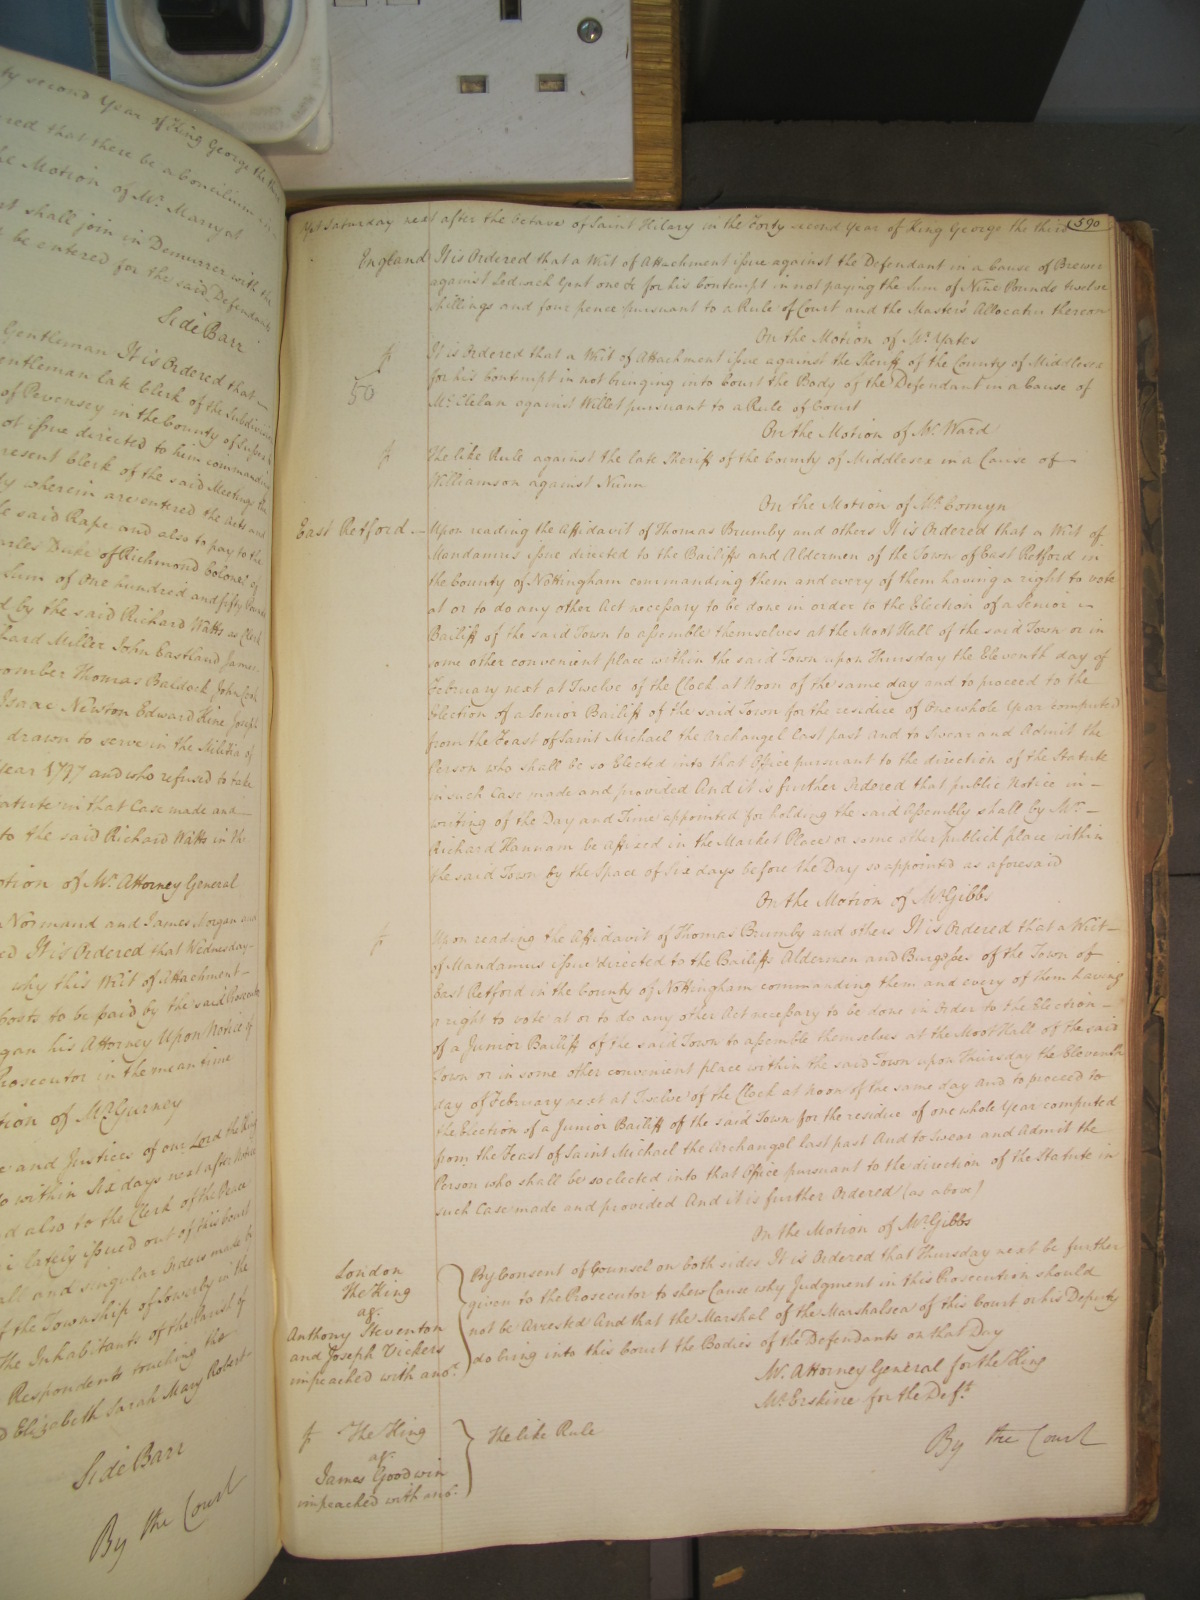 ty second Year of King George the third
red that there be a Concilium
he Motion of Mr. Marryat
nt shall join in Demurrer with the
t be entered for the said Defendants
Side Barr
Gentleman It is Ordered that
entleman late Clerk of the Subdivision
of Pevensey in the County of Sussex
ot issue directed to him commanding
resent Clerk of the said Meetings the
ly wherein are entered the Acts and
e said Rape and also to pay to the
arles Duke of Richmond Colonel of
Sum of One hundred and fifty Pounds
d by the said Richard Watts as Clerk
hard Miller John Eastland James
omber Thomas Baldock John
Isaac Newton Edward Kine Joseph
drawn to serve in the Militia of
year 1797 and who refused to take
tatute in that Case made and
to the said Richard Watts in the
otion of Mr. Attorney General
Normand and James Morgan and
ed It is Ordered that Wednesday
why this Writ of Attachment
Costs to be paid by the said Prosecutor
gan his Attorney Upon Notice of
rosecutor in the mean time
tion of Mr. Gurney
e and Justices of our Lord the King
o within Six days next after Notice
d also to the Clerk of the Peace
i lately issued out of this Court
all and singular Orders made by
f the Township of Sowerby in the
the Inhabitants of the Parish of
Respondents touching the
d Elizabeth Sarah Mary Robert
Side Barr
By the Court
Yet Saturday next after the Octave of Saint Hilary in the Forty second Year of King George the third 590
England It is Ordered that a Writ of Attachment issue against the Defendant in a Cause of Brewer
against Sedwick Gent one &c for his Contempt in not paying the Sum of Nine Pounds twelve
shillings and four pence pursuant to a Rule of Court and the Master's Allocatur thereon
On the Motion of Mr. Yates
It is Ordered that a Writ of Attachment issue against the Sheriff of the County of Middlesex
50 for his Contempt in not bringing into Court the Body of the Defendant in a Cause of
McClelan against Willet pursuant to a Rule of Court
On the Motion of Mr. Ward
The like Rule against the late Sheriff of the County of Middlesex in a Cause of
Williamson against Nunn
On the Motion of Mr. Comyn
East Retford Upon reading the Affidavit of Thomas Brumby and others It is Ordered that a Writ of
Mandamus issue directed to the Bailiffs and Aldermen of the Town of East Retford in
the County of Nottingham commanding them and every of them having a right to vote
at or to do any other Act necessary to be done in order to the Election of a Senior
Bailiff of the said Town to assemble themselves at the Moot Hall of the said Town or in
some other convenient place within the said Town upon Thursday the Eleventh day of
February next at Twelve of the Clock at Noon of the same day and to proceed to the
Election of a Senior Bailiff of the said Town for the residue of One whole Year computed
from the Feast of Saint Michael the Archangel last past And to Swear and Admit the
Person who shall be so Elected into that Office pursuant to the direction of the Statute
in such Case made and provided And it is further Ordered that public Notice in
writing of the Day and Time appointed for holding the said Assembly shall by Mr.
Richard Hannam be affixed in the Market Place or some other publick place within
the said Town by the Space of Six days before the Day so appointed as aforesaid
On the Motion of Mr. Gibbs
Upon reading the Affidavit of Thomas Brumby and others It is Ordered that a Writ
of Mandamus issue directed to the Bailiffs Aldermen and Burgesses of the Town of
East Retford in the County of Nottingham commanding them and every of them having
a right to vote at or to do any other Act necessary to be done in Order to the Election
of a Junior Bailiff of the said Town to assemble themselves at the Moot Hall of the said
Town or in some other convenient place within the said Town upon Thursday the Eleventh
day of February next at Twelve of the Clock at Noon of the same day And to proceed to
the Election of a Junior Bailiff of the said Town for the residue of one whole Year computed
from the Feast of Saint Michael the Archangel last past And to Swear and Admit the
Person who shall be so elected into that Office pursuant to the direction of the Statute in
such Case made and provided And it is further Ordered (as above)
On the Motion of Mr. Gibbs
London
The King
agt.
Anthony Steventon
and Joseph Vickers
impeached with anor.
By Consent of Counsel on both sides It is Ordered that Thursday next be further
given to the Prosecutor to shew Cause why Judgment in this Prosecution should
not be Arrested And that the Marshal of the Marshalsea of this Court or his Deputy
do bring into this Court the Bodies of the Defendants on that Day
Mr. Attorney General for the King
Mr. Erskine for the Deft.
The King
agt.
James Goodwin
impeached with anor.
The like Rule
By the Court